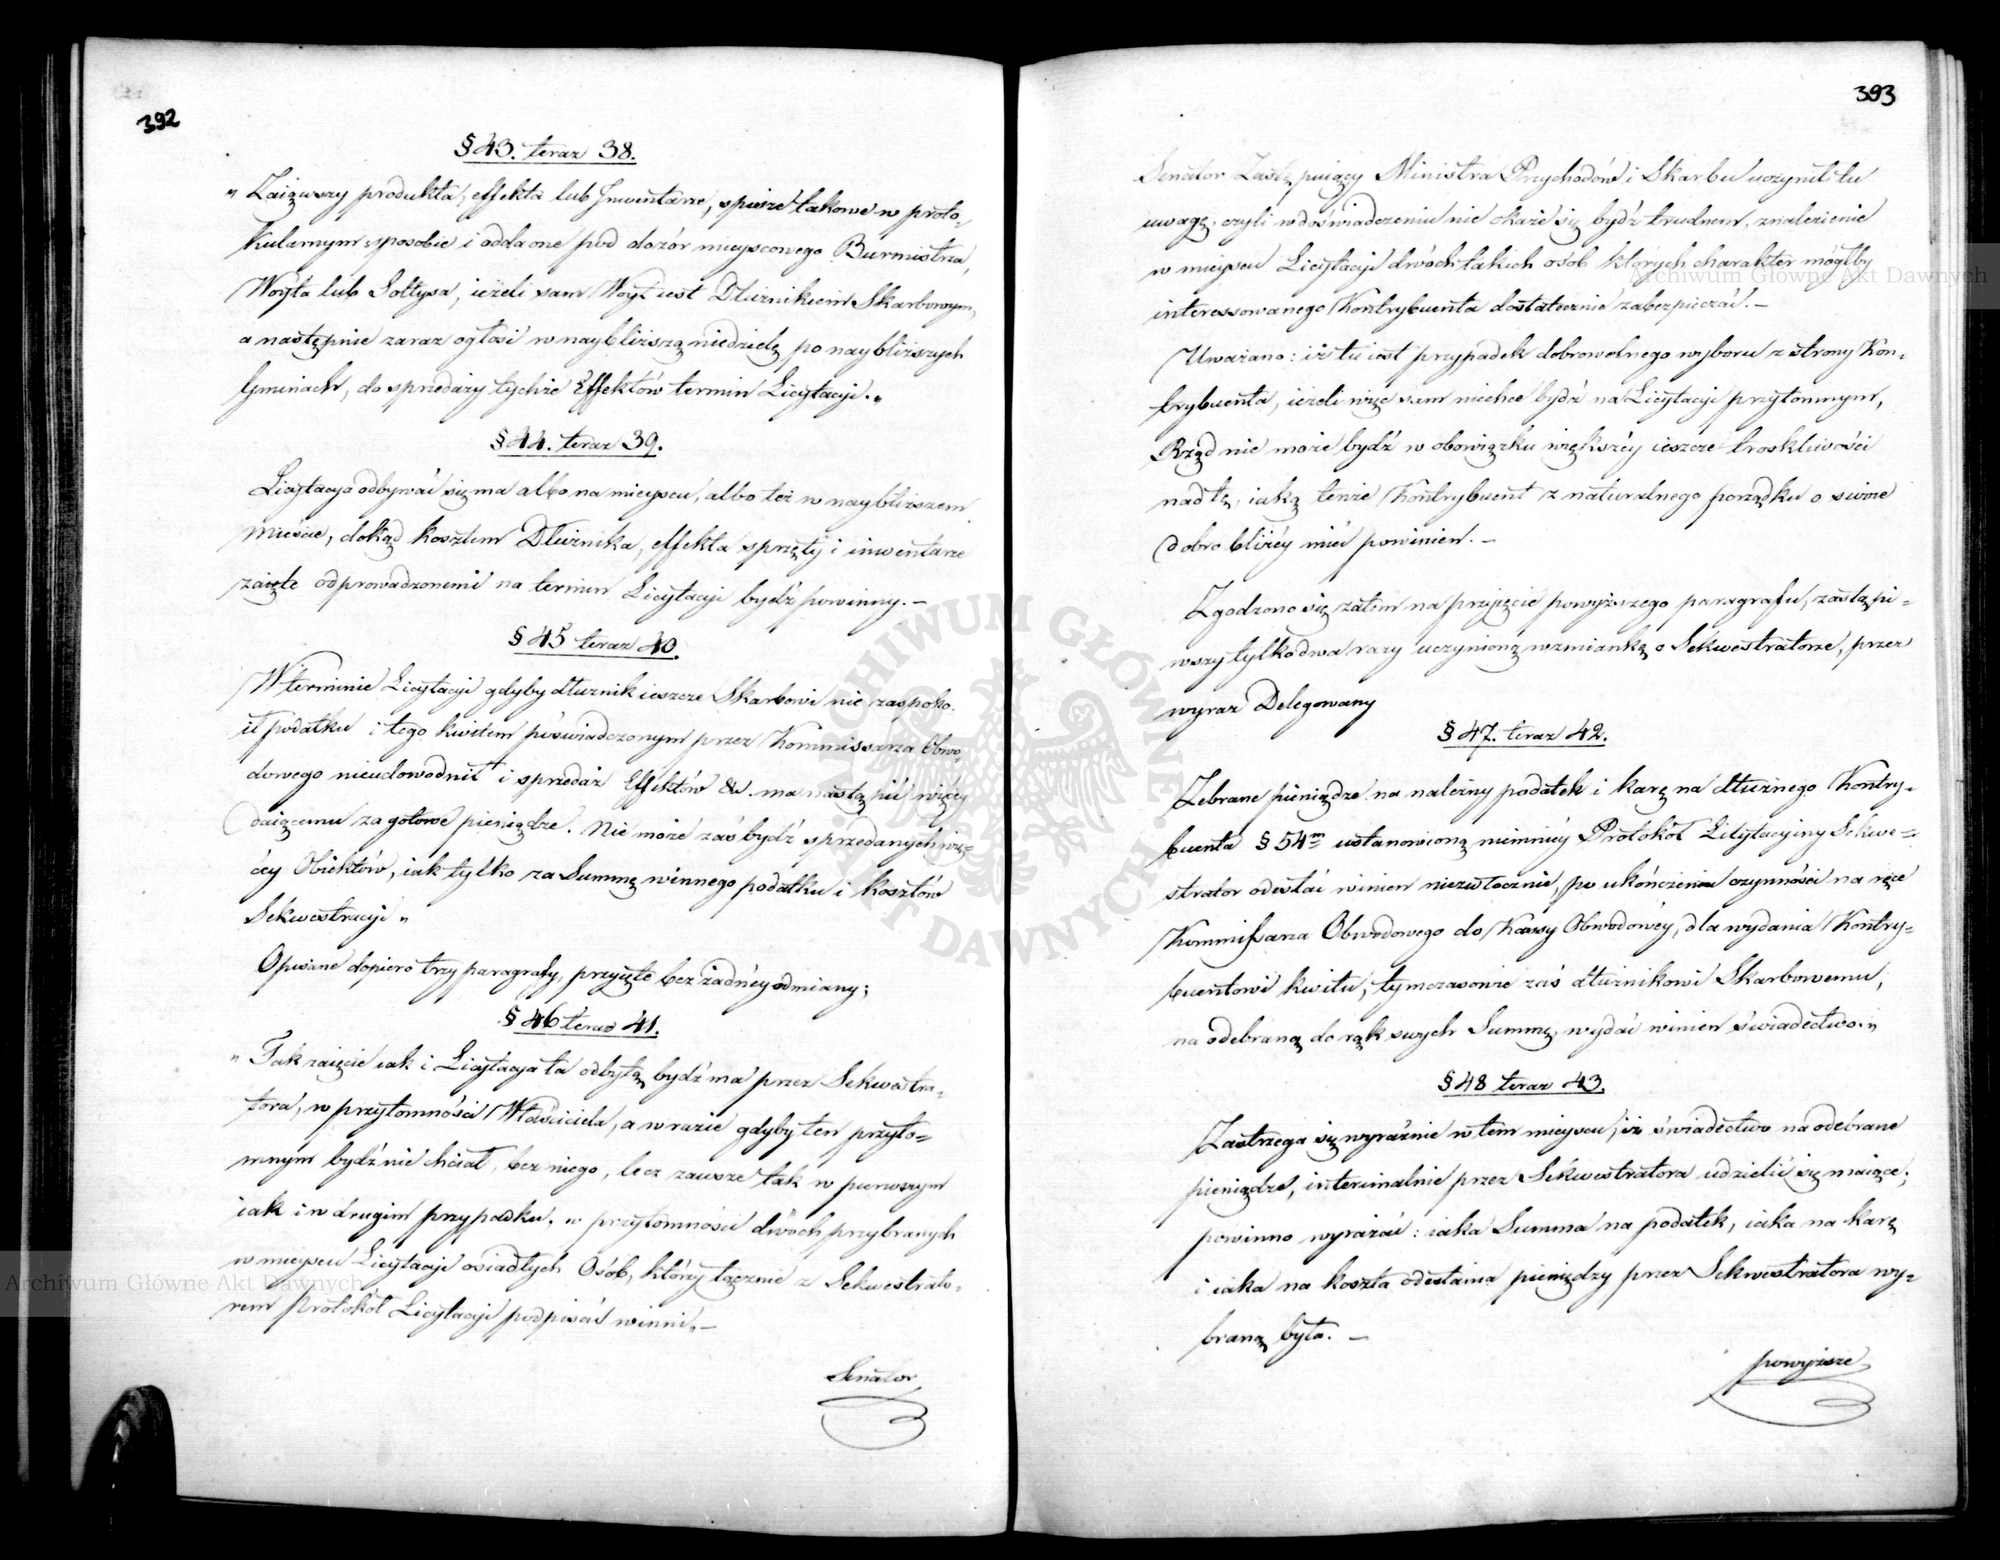 392
§ 43. teraz 38.
„ Zaiąwszy produkta, effekta lub Inwentarze, spisze takowe w proto-
kularnym sposobie i odda one pod dozór mieyscowego Burmistrza,
Woyta lub Sołtysa, ieżeli sam Woyt iest Dłużnikiem Skarbowym,
a następnie zaraz ogłosi w naybliższą niedzielę po naybliższych
Gminach, do sprzedaży tychże Effektów termin Licytacyi. „
§ 44. teraz 39.
Licytacya odbywać się ma albo na mieyscu, albo też w naybliższem
mieście, dokąd kosztem Dłużnika, effekta sprzęty i inwentarze
zaięte odprowadzonemi na termin Licytacyi bydź powinny. –
§ 45 teraz 40.
W terminie Licytacyi gdyby dłużnik ieszcze Skarbowi nie zaspoko-
ił podatku i tego kwitem poświadczonym przez Kommissarza Obwo-
dowego nieudowodnił i sprzedaż Effektów &c. ma nastąpić więcéy
daiącemu za gotowe pieniądze. Nie może zaś bydź sprzedanych wię-
céy Obiektów, iak tylko za Summę winnego podatku i kosztów
Sekwestracyi „
Opisane dopiero trzy paragrafy, przyięte bez żadnéy odmiany;
§ 46 teraz 41.
„ Tak zaięcie iak i Licytacya ta odbytą bydź ma przez Sekwestra-
tora, w przytomności Właściciela, a w razie gdyby ten przyto-
mnym bydź nie chciał, bez niego, lecz zawsze tak w pierwszym
iak i w drugim przypadku, w przytomności dwóch przybranych
w mieyscu Licytacyi osiadłych Osób, którzy łącznie z Sekwestrato-
rem protokół Licytacyi podpisać winni. –
Senator
393
Senator Zastępuiący Ministra Przychodów i Skarbu uczynił tu
uwagę, czyli w doświadczeniu nie okaże się bydź trudnem, znalezienie
w mieyscu Licytacyi dwóch takich osób których charakter mógłby
interessowanego Kontrybuenta dostatecznie zabezpieczać. –
Uważano: iż tu iest przypadek dobrowolnego wyboru z strony Kon-
trybuenta, ieżeli więc sam niechce bydź na Licytacyi przytomnym,
Rząd nie może bydź w obowiązku większéy ieszcze troskliwości
nad tę, iaką tenże Kontrybuent z naturalnego porządku o swoie
dobro bliżéy mieć powinien. –
Zgodzono się zatem na przyięcie powyższego paragrafu, zastąpi-
wszy tylko dwa razy uczynioną wzmiankę o Sekwestratorze, przez
wyraz Delegowany
§ 47. teraz 42.
Zebrane pieniądze na należny podatek i karę na dłużnego Kontry-
buenta § 54m ustanowioną niemniéy Protokół Licytacyiny Sekwe-
strator odesłać winien niezwłocznie, po ukończeniu czynności na ręce
Kommissarza Obwodowego do Kassy Obwodowéy, dla wydania Kontry-
buentowi kwitu; tymczasowie zaś dłużnikowi Skarbowemu,
na odebraną do rąk swych Summę, wydać winien świadectwo. „
§ 48 teraz 43.
Zastrzega się wyraźnie w tem mieyscu, iż świadectwo na odebrane
pieniądze, interimalnie przez Sekwestratora udzielić się maiące;
powinno wyrażać: iaka Summa na podatek, iaka na karę
i iaka na koszta odesłania pieniędzy przez Sekwestratora wy-
braną była. –
powyższe
Archiwum Główne Akt Dawnych
Archiwum Główne Akt Dawnych
ARCHIWUM GŁÓWNE AKT DAWNYCH